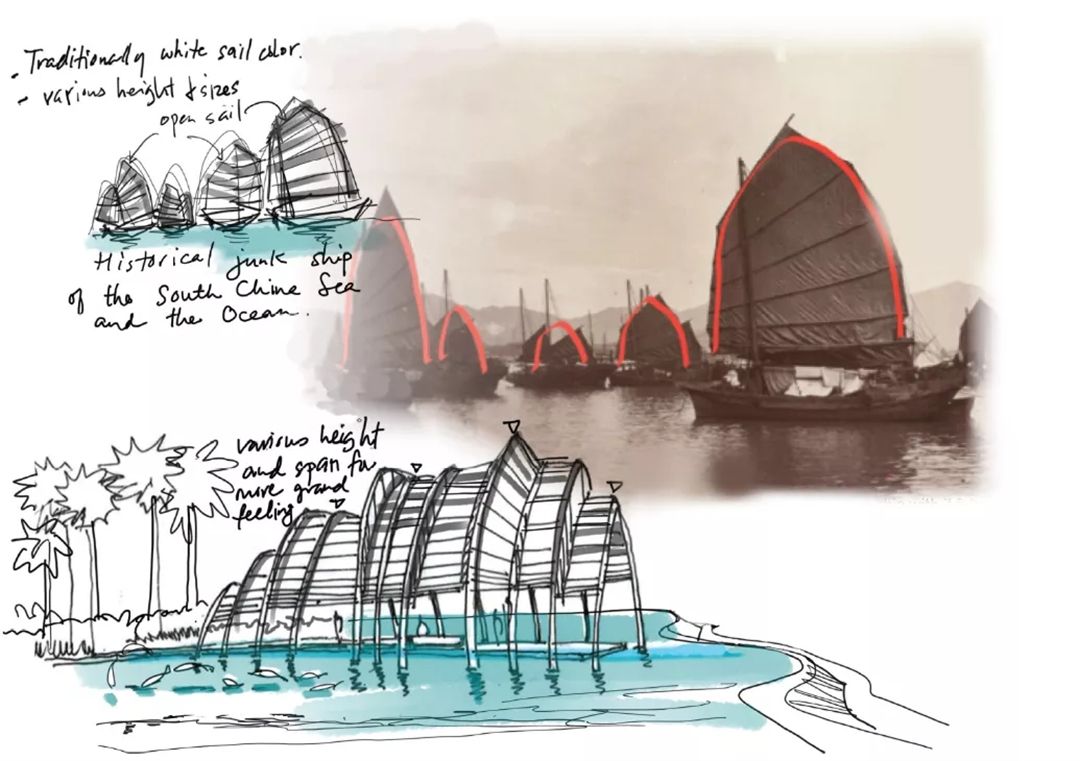 - Traditionally white sail color.
- various height & sizes
open sail
Historical junk ship
of the South China Sea
and the Ocean.
various height
and span for
more grand
feeling